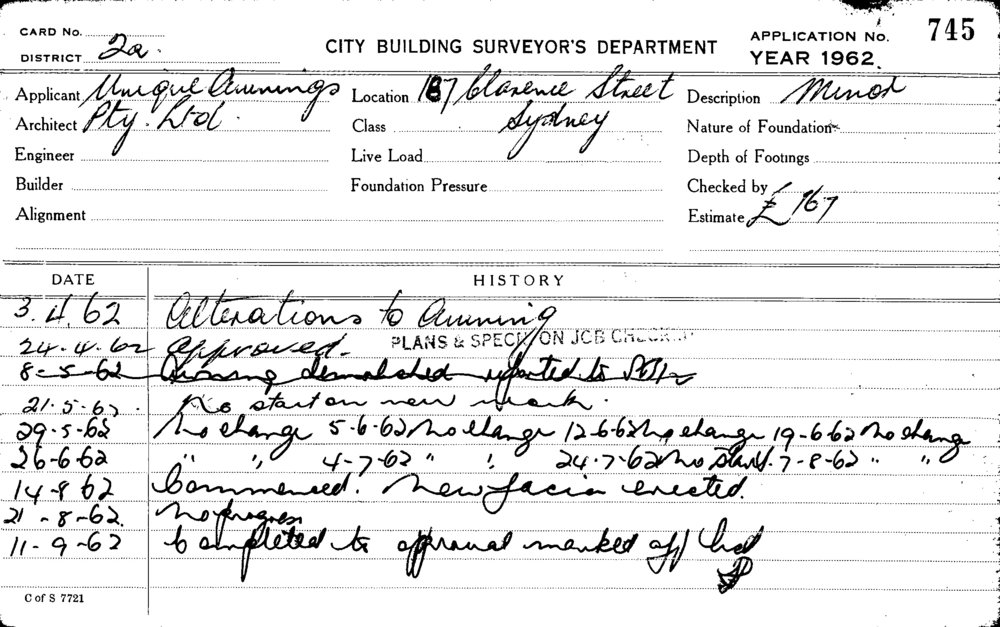 CARD No.
DISTRICT 2a.
CITY BUILDING SURVEYOR'S DEPARTMENT
APPLICATION No. 745
YEAR 1962.
Applicant Unique Awnings
Location 187 Clarence Street
Description Minor
Architect Pty. Ltd.
Class Sydney
Nature of Foundation
Engineer
Live Load
Depth of Footings
Builder
Foundation Pressure
Checked by
Alignment
Estimate £167
DATE HISTORY
3.4.62 Alterations to Awning
24.4.62 Approved. PLANS & SPECN ON JOB
8-5-62 Awning demolished reported to
21.5.62. No start on new work.
29-5-62 No change 5-6-62 No change 12-6-62 No change 19-6-62 No change
26-6-62 " " 4-7-62 " " 24-7-62 No start. 7-8-62 " "
14-8 62 Commenced. New facia erected.
21-8-62. No progress
11-9-62 Completed to approval marked off
C of S 7721